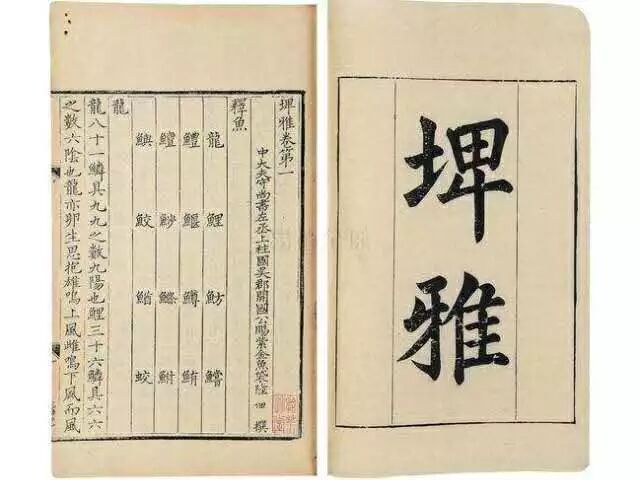 埤雅
埤雅卷第一
中大夫守尚書左丞上柱國吳郡開國公賜紫金魚袋陸佃撰
釋魚
龍 鯉 魴 鱨
鱧 鰋 鱒 鮪
鱣 魦 鮒
鱮 鮫 鰌 蛟
龍
龍八十一鱗具九九之數九陽也鯉三十六鱗具六六
之數六陰也龍亦卵生思抱雄鳴上風雌鳴下風而風